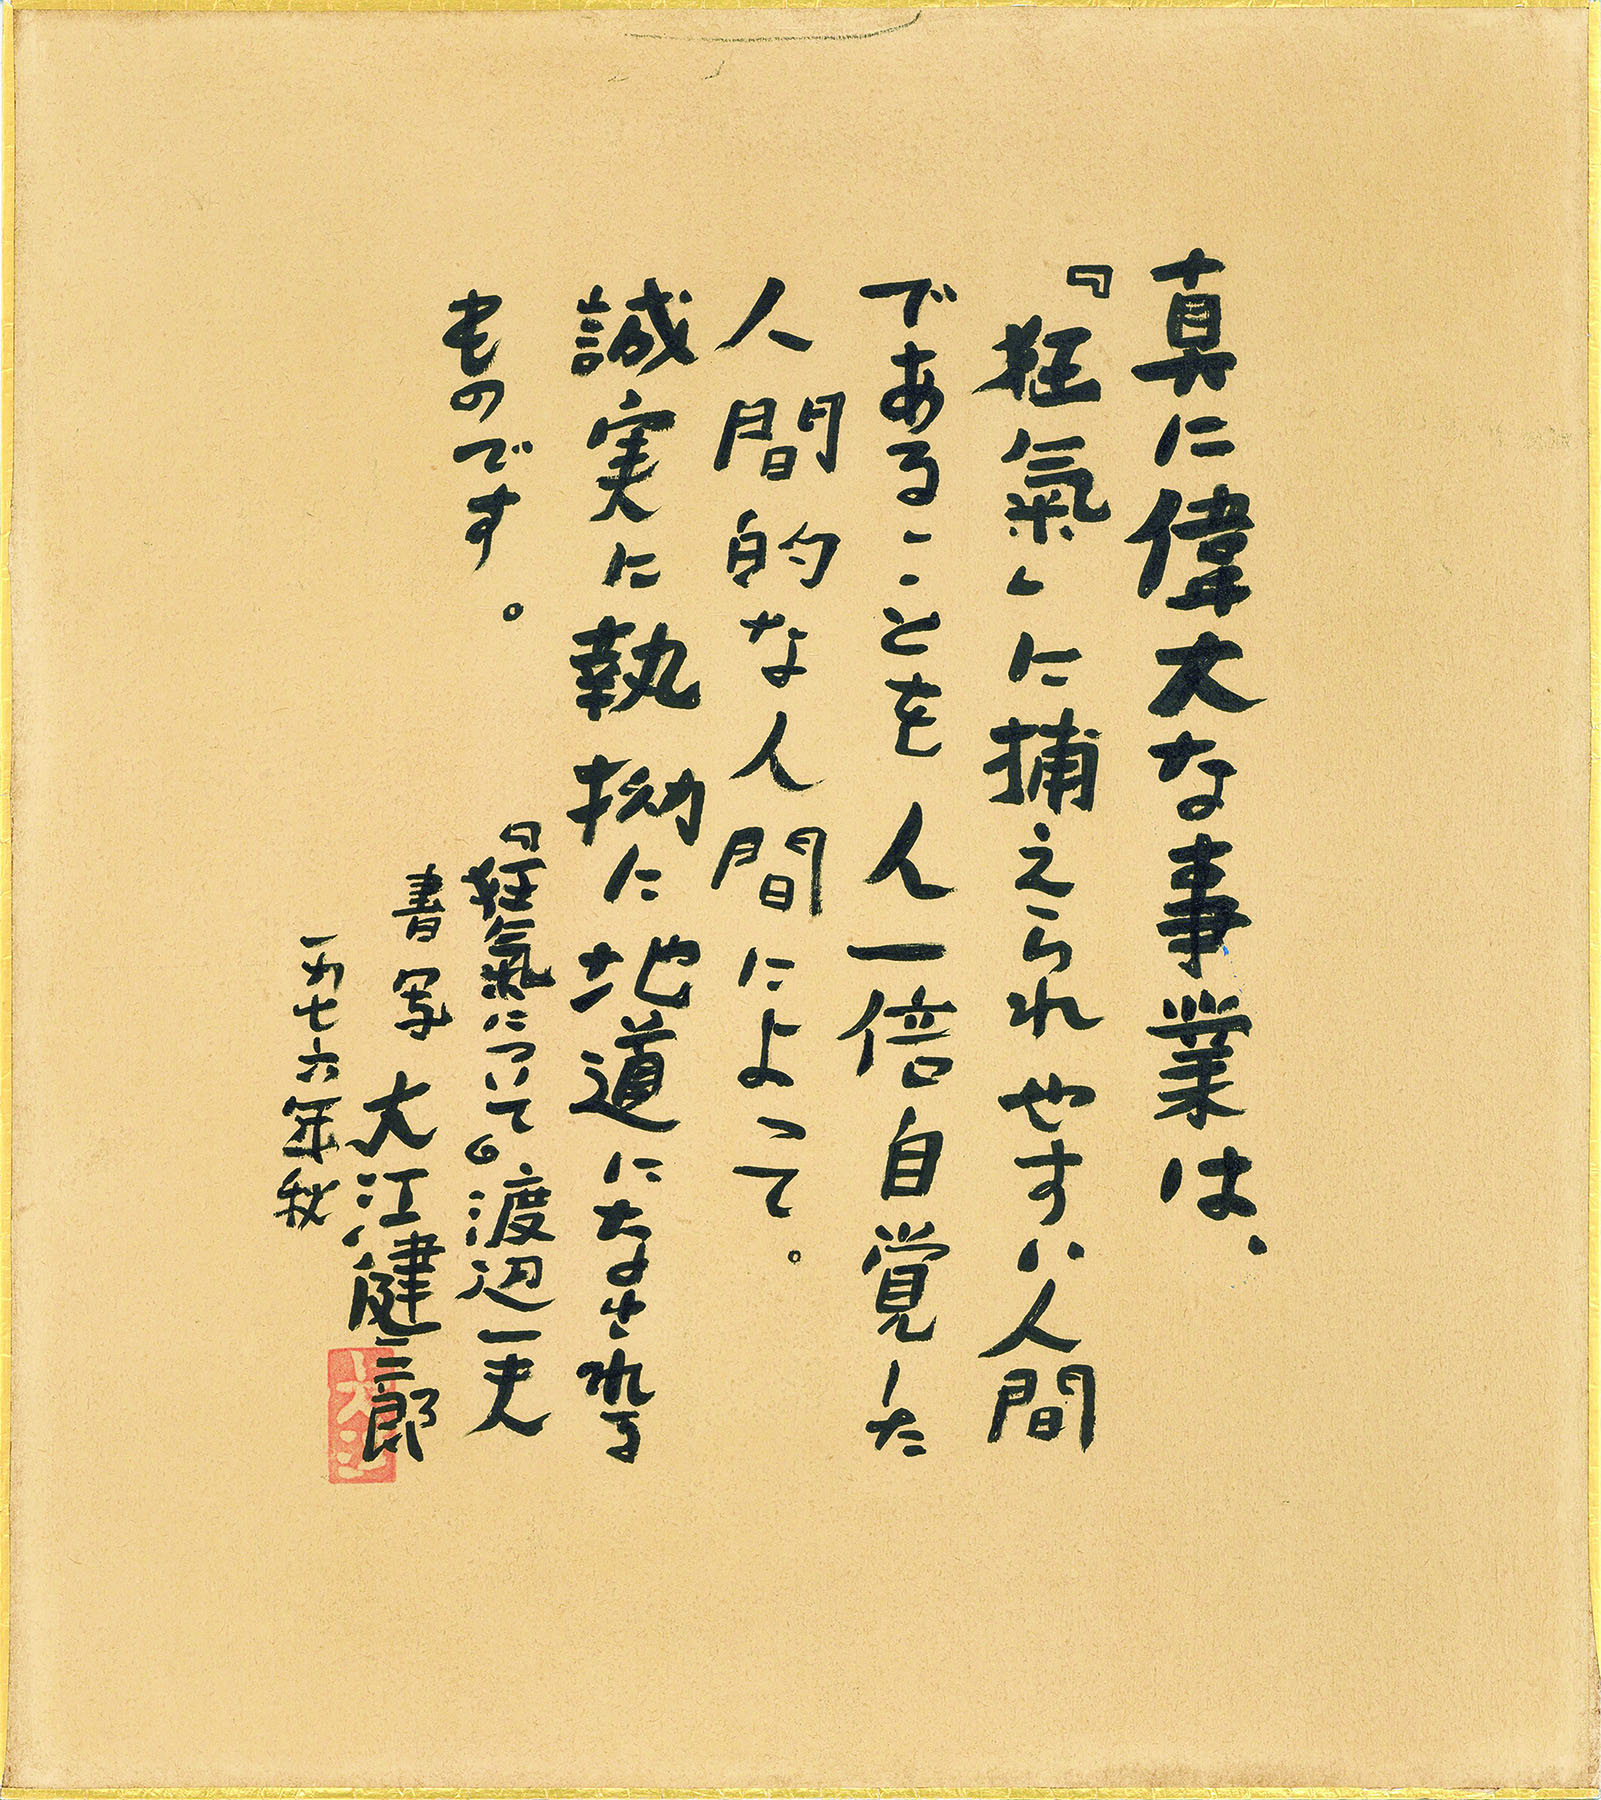 真に偉大な事業は、
『狂氣』に捕えられやすい人間
であることを人一倍自覚した
人間的な人間によって。
誠実に執拗に地道になされる
ものです。
『狂氣について』渡辺一夫
書写 大江健三郎
一九七六年秋
大江